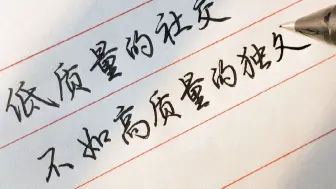 低质量的社交
不如高质量的独